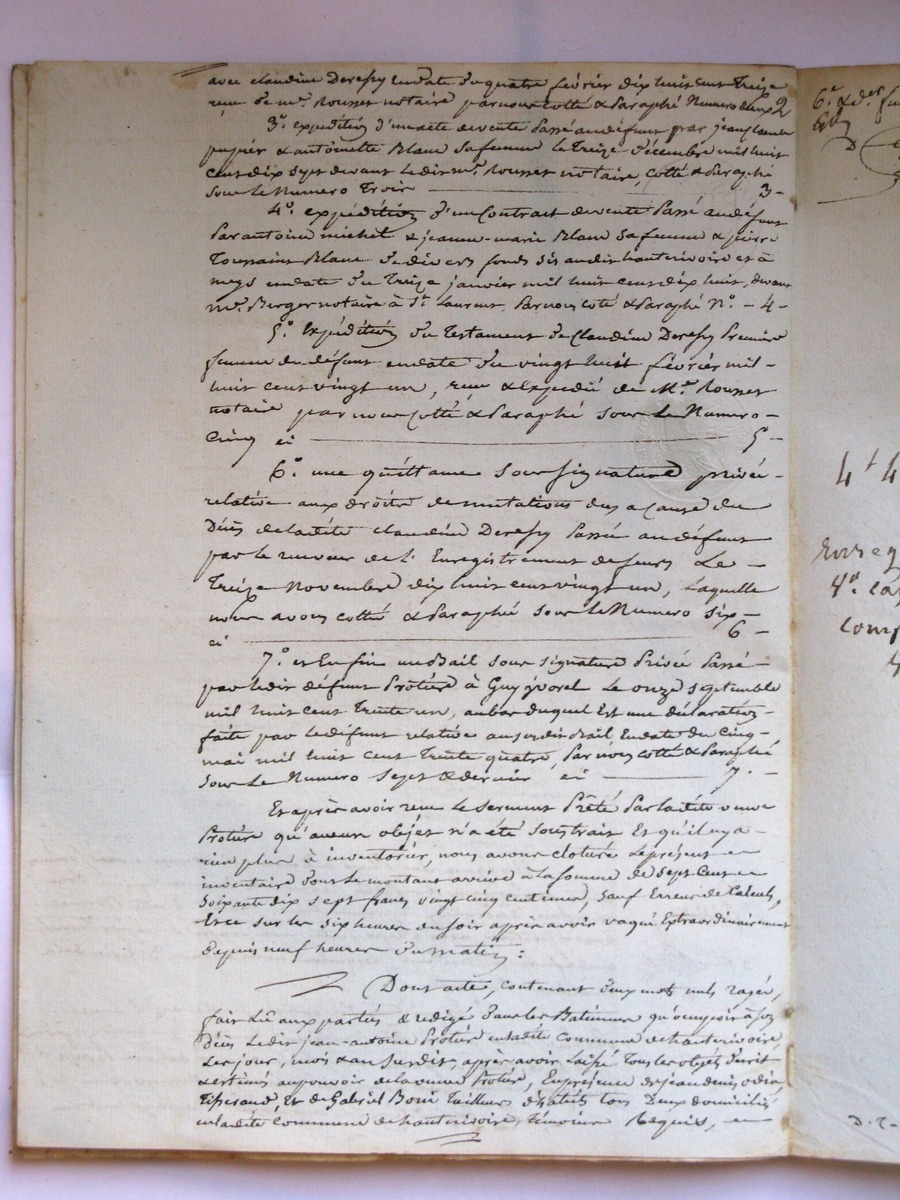 avec claudine Deressy en date du quatre février dix huit cent treize
reçu de me. Rousset notaire par nous cotté & paraphé Numero deux 2
3°. expédition d'un acte de vente passé au défunt par jean claude
pupier & antoinette Blanc sa femme le treize décembre mil huit
cent dix sept devant ledit me. Rousset notaire, cotté & paraphé
sous le Numero trois 3-
4°. expédition d'un Contrat de vente passé au défunt
par antoine michel & jeanne-marie Blanc sa femme & pierre
Toussaint Blanc de divers fonds sis audit hauterivoire et à
meys en date du treize janvier mil huit cent dix huit, devant
me. Berger notaire à St. Laurent, par nous coté & paraphé N°. - 4 -
5°. Expédition du testament de Claudine Deressy première
femme du défunt en date du vingt huit février mil
huit cent vingt un, reçu & expédié de Me. Rousset
notaire par nous cotté & paraphé sous le Numero
cinq ci 5-
6°. une quittance sous signature privée
relative aux droits de mutations dus a cause du
Décès de ladite claudine Deressy passée au défunt
par le receveur de l'Enregistrement de feurs Le
treize Novembre dix huit cent vingt un, laquelle
nous avons cotté & paraphé sous le Numero six
ci 6 -
7°. et Enfin un Bail sous signature privée passé
par ledit défunt Protière à Guy yvorel le onze septembre
mil huit cent trente un, au bas duquel Est une déclaration
faite par le défunt relative au susdit Bail En date du cinq
mai mil huit cent trente quatre, par nous cotté & paraphé
sous Le Numero sept & dernier ci 7. -
Et après avoir reçu le serment prêté par ladite veuve
Protière qu'aucun objet n'a été soustrait Et qu'il n'y a
rien plus à inventorier, nous avons cloturé le présent
inventaire dont le montant arrive à la somme de sept cent
soixante dix sept francs vingt cinq centimes, sauf Erreur de Calculs,
Et ce sur les six heures du soir après avoir vaqué Extraordinairement
depuis neuf heures du matin :
Dont acte, contenant deux mots nuls rayés,
fait lû aux parties & rédigé dans les Batimens qu'occupoit à son
Décès ledit jean-antoine Protière en ladite commune de hauterivoire
Les jour, mois & an susdit, après avoir laissé tous les objets décrit
& estimés au pouvoir de la veuve Protière, En présence de jean denis odin
Tisserand, Et de Gabriel Boni Tailleur d'habits tous Deux domiciliés
en ladite Commune de hauterivoire, témoins Requis,
6e & der
Enreg
4° ca
comp